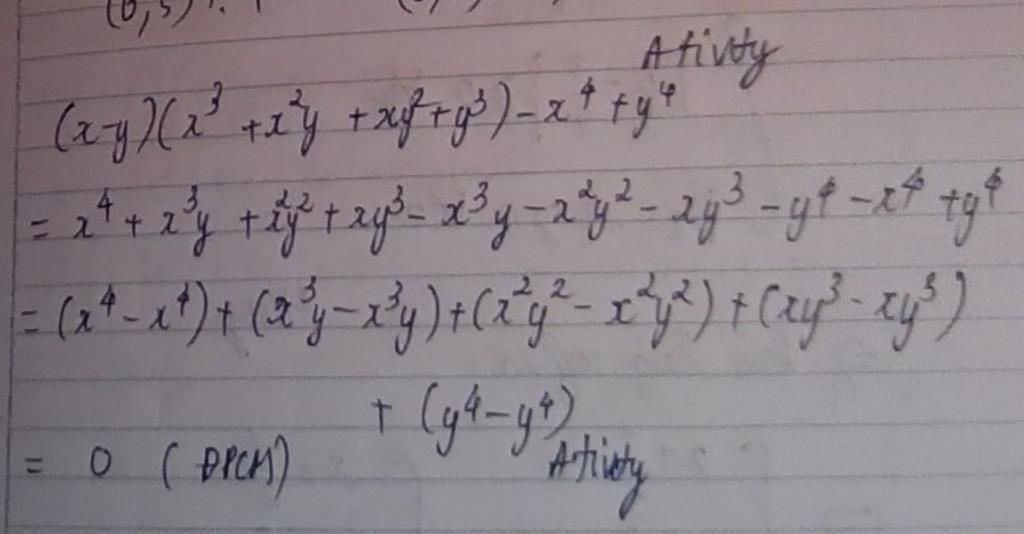 Ativity
(x-y)(x³ + x²y + xy² + y³) - x⁴ + y⁴
= x⁴ + x³y + x²y² + xy³ - x³y - x²y² - xy³ - y⁴ - x⁴ + y⁴
= (x⁴ - x⁴) + (x³y - x³y) + (x²y² - x²y²) + (xy³ - xy³)
+ (y⁴ - y⁴)
= 0 (ĐPCM) Ativity